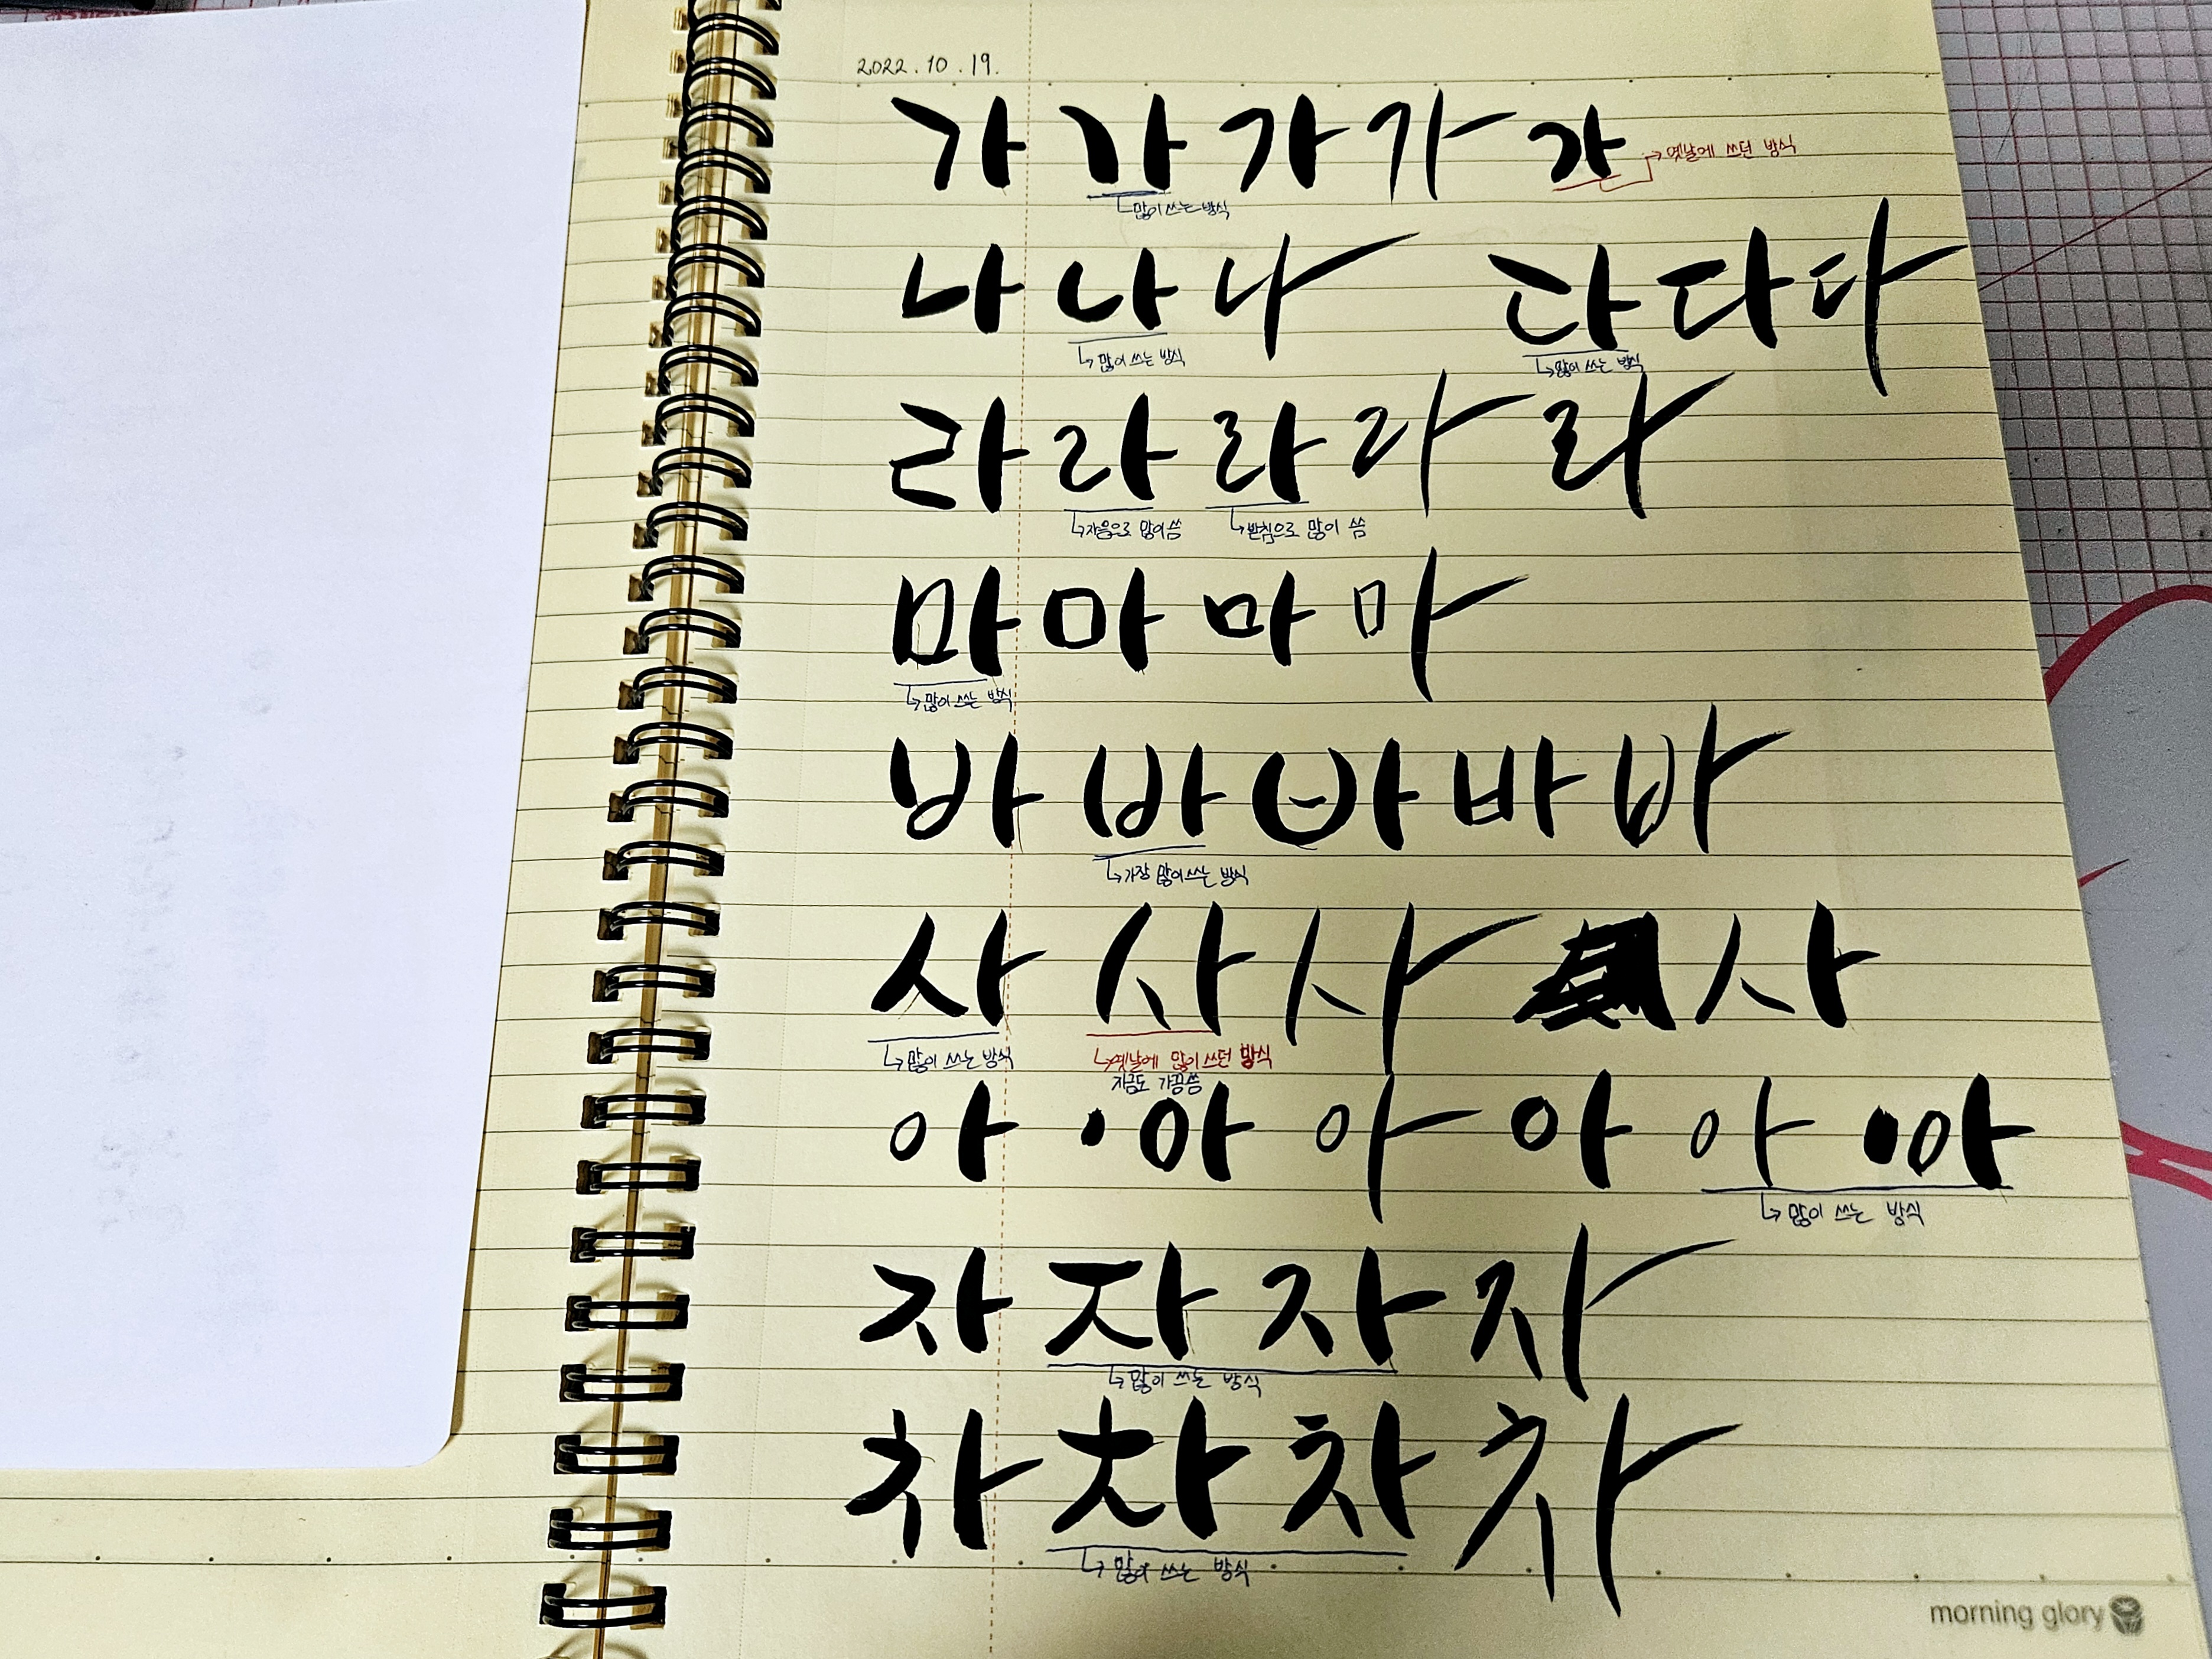 2022.10.19.
가 가 가 가 가 → 옛날에 쓰던 방식
↳ 많이 쓰는 방식
나 나 나 다 다 다
↳ 많이 쓰는 방식 ↳ 많이 쓰는 방식
라 라 라 라 라
↳ 자음으로 많이 씀 ↳ 받침으로 많이 씀
마 마 마 마
↳ 많이 쓰는 방식
바 바 바 바 바
↳ 가장 많이 쓰는 방식
사 사 사 사
↳ 많이 쓰는 방식 ↳ 옛날에 많이 쓰던 방식
지금도 가끔 씀
아 · 아 아 아 아 · 아
↳ 많이 쓰는 방식
자 자 자 자
↳ 많이 쓰는 방식
차 차 차 차
↳ 많이 쓰는 방식
morning glory